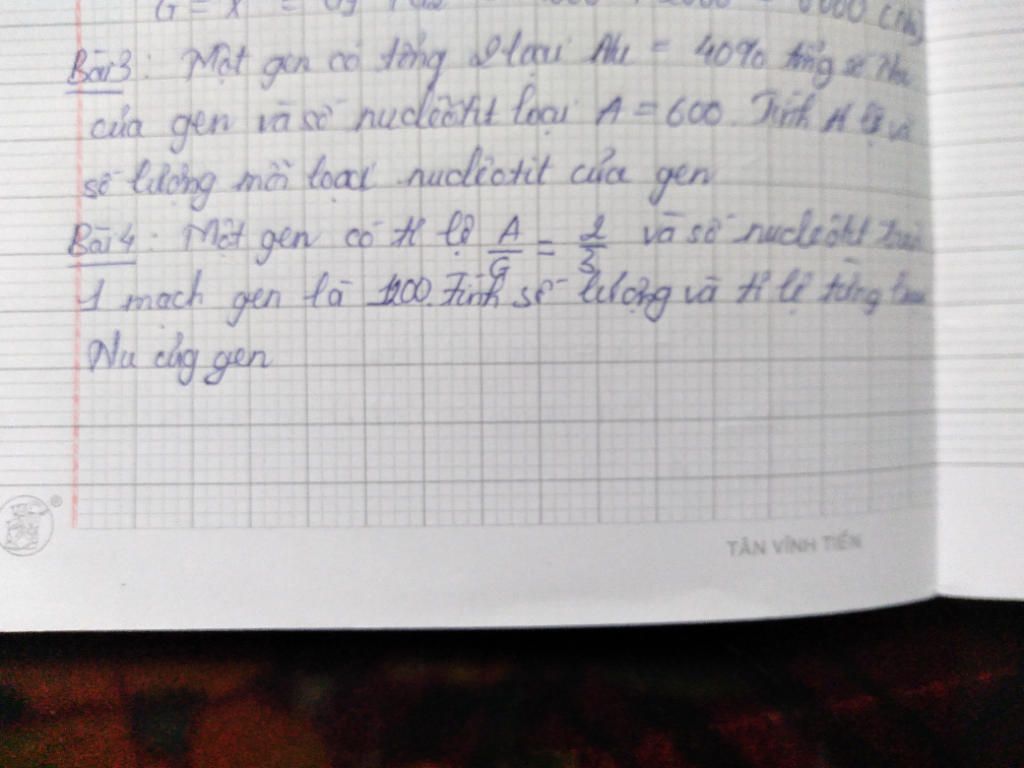 G = X =
Bài 3: Một gen có tổng 2 loại Nu = 40% tổng số Nu
của gen và số nuclêôtit loại A = 600. Tính tỉ lệ và
số lượng mỗi loại nuclêotit của gen
Bài 4: Một gen có tỉ lệ A/G = 2/3 và số nuclêôtit trên
1 mạch gen là 1200. Tính số lượng và tỉ lệ từng loại
Nu của gen
TÂN VĨNH TIẾN